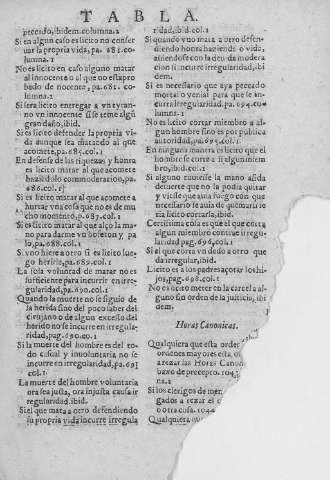 TABLA.
peccado, ibidem.columna.1
Si en algun caso es licito no conser
uar la propria vida, pa. 681. co-
lumna. 1
No es licito en caso alguno matar
al innocente o al que no esta pro
bado de nocente, pa. 681. co-
lumna.
Si sera licito entregar a vn tyran-
no vn innocente si se teme algũ
gran daño, ibid.
Si es licito defender la propria vi-
da aunque sea matando al que
acomete, pa. 685. col. 1
En defensa de las riquezas y honra
es licito matar al que acomete
haziẽdolo commoderacion, pa.
686. col. 1
Si es licito matar al que acomete a
hurtar vna cosa que no es de mu
cho momento, p. 687. col. 1
Si es licito matar al que alço la ma-
no para darme vn bofeton y pa
lo, pa. 688. col. 1
Si vno hiere a otro si es licito lue-
go herirlo, pa. 689. col. 1
La sola voluntad de matar no es
sufficiente para incurrir en irre-
gularidad, pa. 690. col. 1
Quando la muerte no se siguio de
la herida sino del poco saber del
cirujano o de algun excesso del
herido no se incurre en irregula-
ridad, pag. 690. co. 1
Si la muerte del hombre es del to-
do casual y inuoluntaria no se
incurre en irregularidad, pa. 691
col. 1
La muerte del hombre voluntaria
ora sea justa, ora injusta causa ir
regularidad. ibid.
Si el que mata a otro defendiendo
su propria vida incurre irregula
ridad, ibid. col. 1
Si quando vno mata a otro defen-
diendo honra haziendo o vida,
auiendose con la deuida modera
cion si incurre irregularidad, ibi
dem.
Si es necesario que aya peccado
mortal o venial para que se in-
curra irregularidad, pa. 694. co-
lumna. 1
No es licito cortar miembro a al-
gun hombre sino es por publica
autoridad, pa. 695. col. 1
En ninguna manera es licito que el
hombre se corte a si algun miem
bro, ibid. col. 1
Si alguno tuuiesse la mano asida
de suerte que no la podia quitar
y viesse que aula fuego con que
necessario se auia de quemar si se
ria licito cortarla, ibid.
Certissima cosa es que el que corta
algun miembro contrae irregu-
laridad pag. 696, col. 1
Si al que corta vn dedo a otro que
da irregular, ibid.
Licito es a los padres açotar los hi-
jos, pag. 698. col. 1
No es licito meter en la carcel a al-
guno sin orden de la justicia, ibi
dem.
Horas Canonicas.
Qualquiera que esta orde
ordenes mayores esta, o
a rezar las Horas Canon
baxo de precepto. 1043.
na. 1
Si los clerigos de men
gados a rezar el
o otra cosa. 1044
Qualquiera